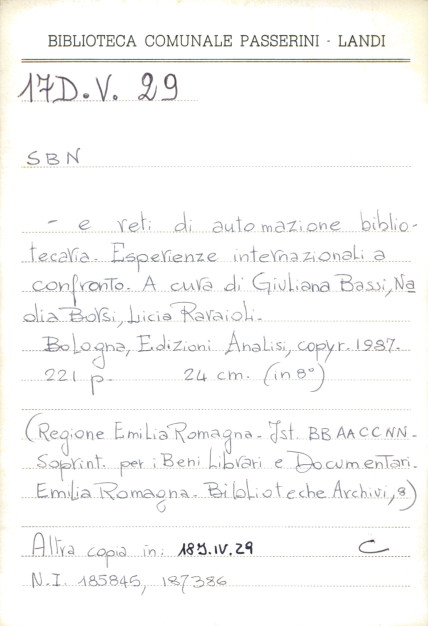 BIBLIOTECA COMUNALE PASSERINI - LANDI
17D.V. 29
SBN
- e reti di automazione biblio-
tecaria. Esperienze internazionali a
confronto. A cura di Giuliana Bassi, Na
dia Borsi, Licia Ravaioli.
Bologna, Edizioni Analisi, copyr. 1987.
221 p. 24 cm. (in 8°)
(Regione Emilia Romagna. Ist. BBAACCNN.
Soprint. per i Beni Librari e Documentari.
Emilia Romagna. Biblioteche Archivi, 8)
Altra copia in: 18J.IV.29 C
N.I. 185845, 187386